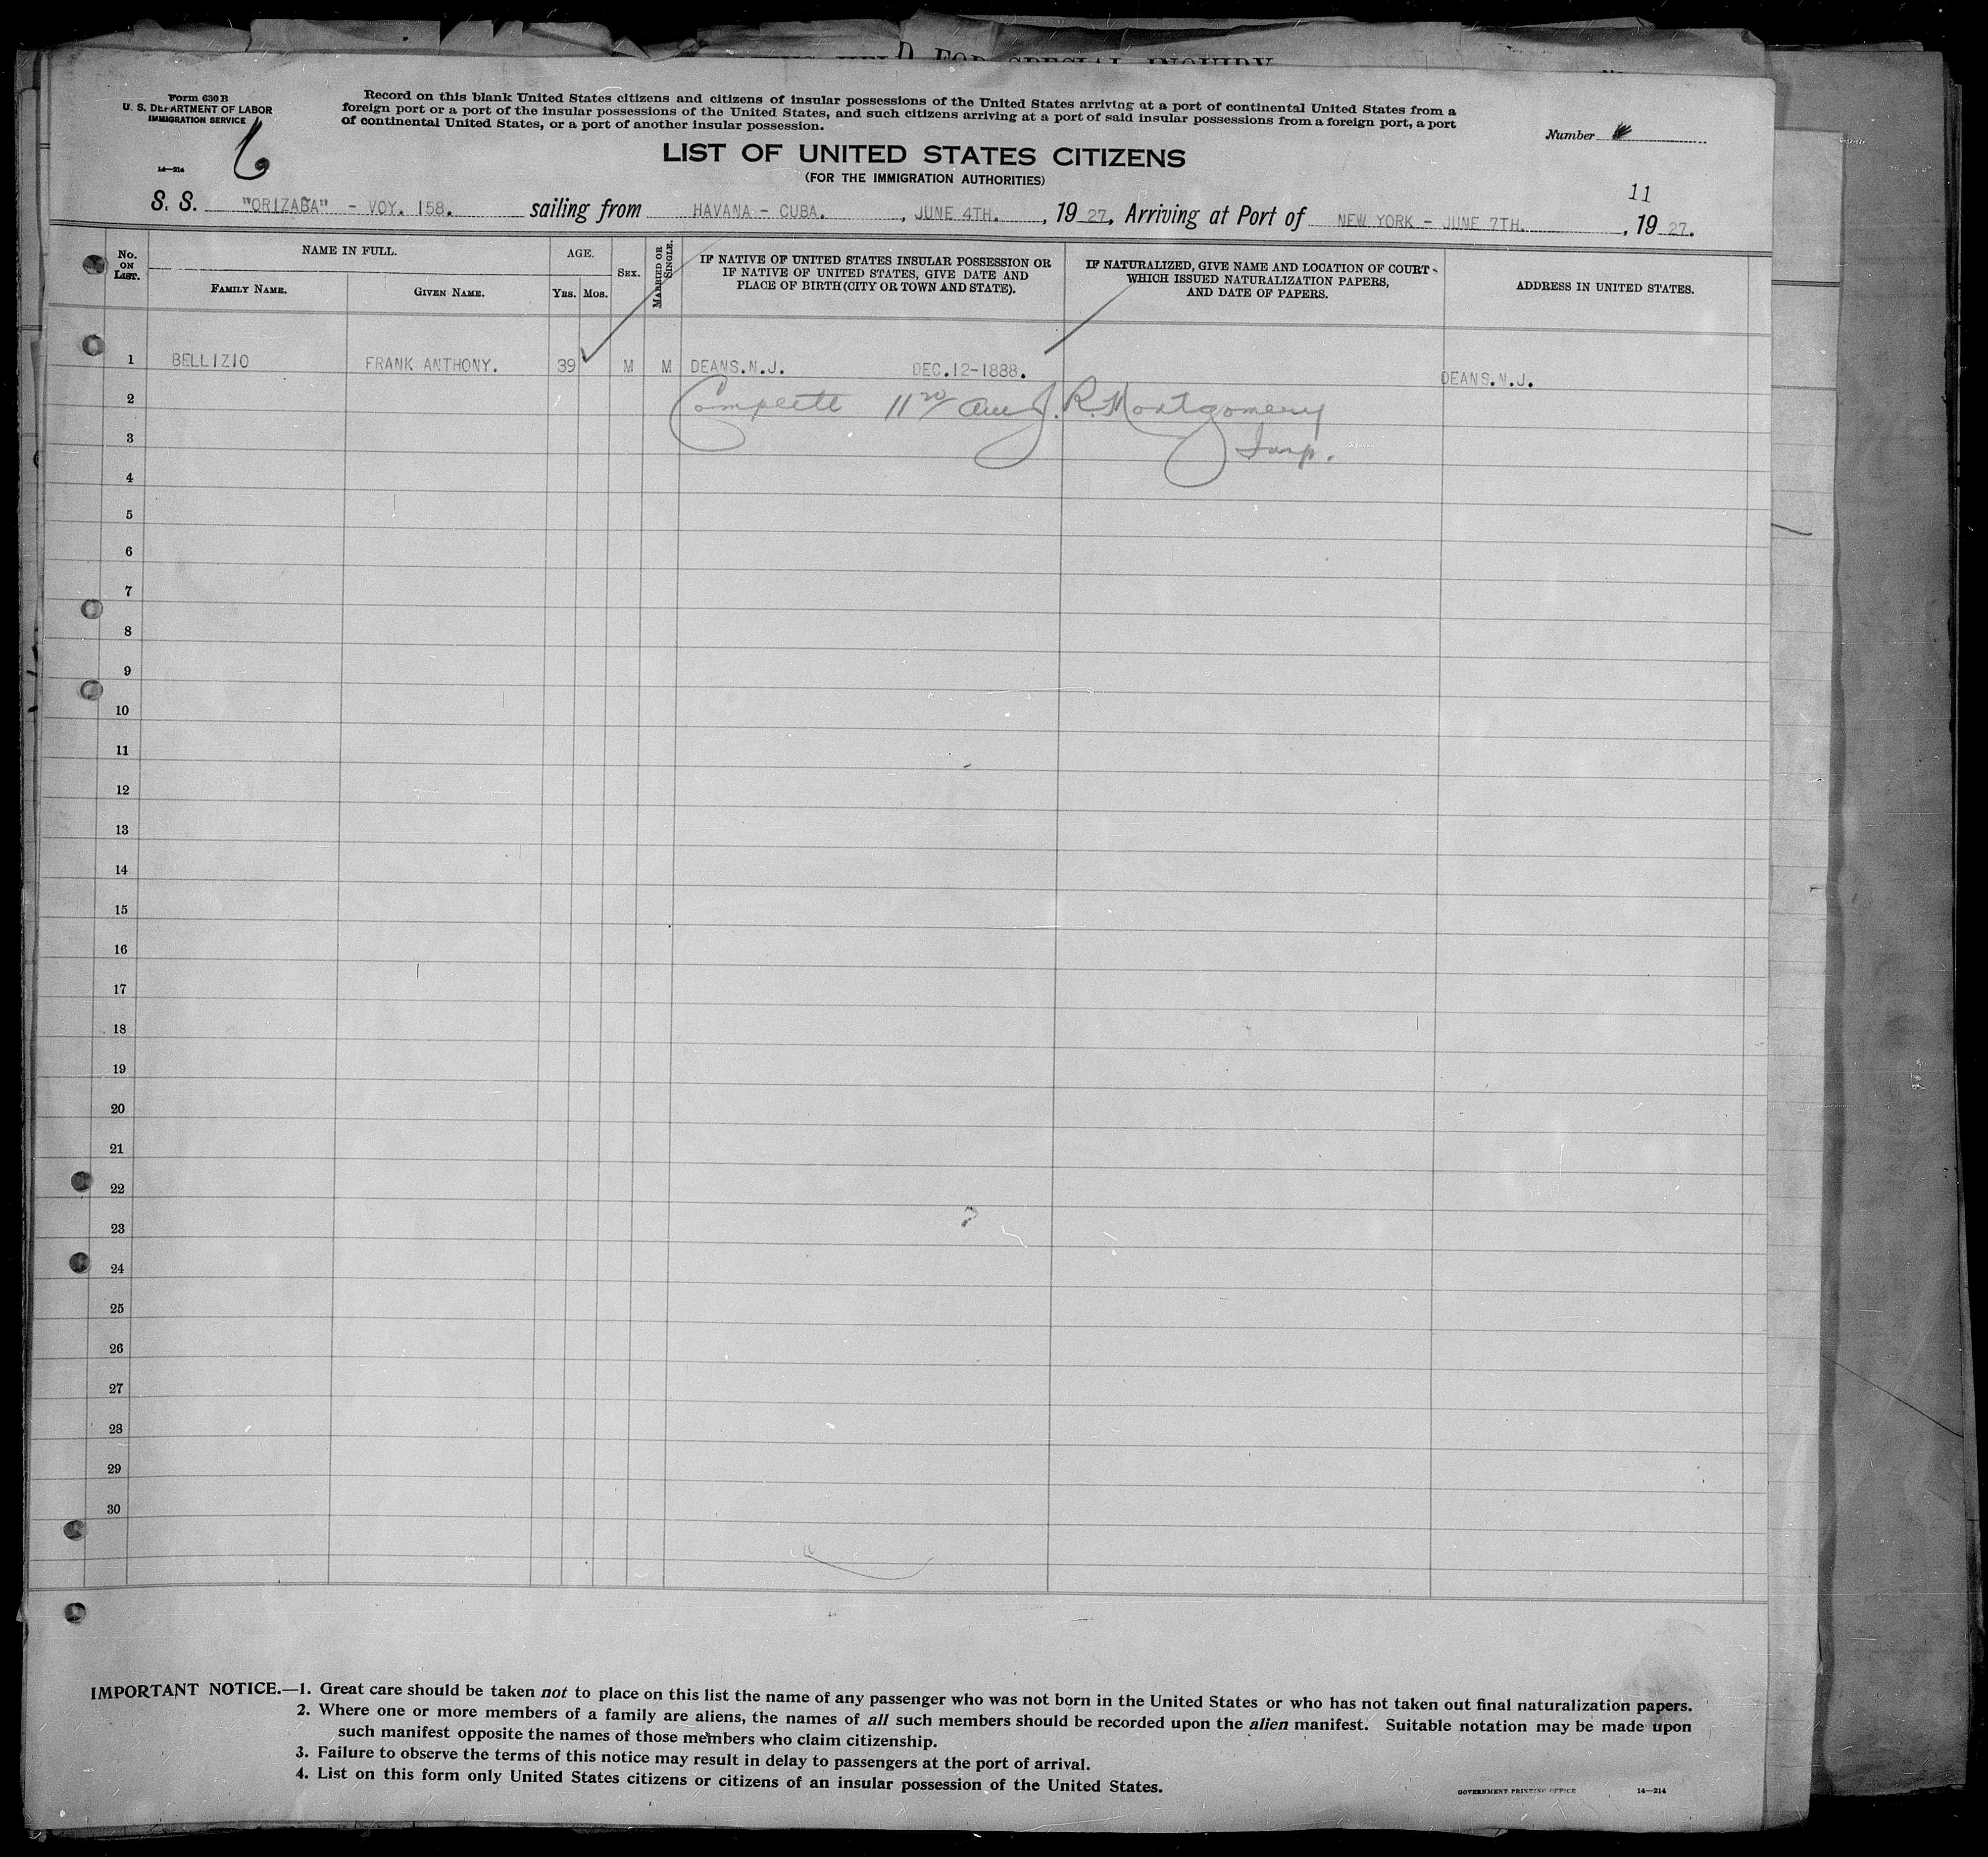 D FOR SPECIAL INQUIRY
Form 630 B
U. S. DEPARTMENT OF LABOR
IMMIGRATION SERVICE
14—214
6
Record on this blank United States citizens and citizens of insular possessions of the United States arriving at a port of continental United States from a
foreign port or a port of the insular possessions of the United States, and such citizens arriving at a port of said insular possessions from a foreign port, a port
of continental United States, or a port of another insular possession.
Number
LIST OF UNITED STATES CITIZENS
(FOR THE IMMIGRATION AUTHORITIES)
11
S. S. "ORIZABA" - VOY. 158. sailing from HAVANA - CUBA. , JUNE 4TH. , 19 27, Arriving at Port of NEW YORK - JUNE 7TH. , 19 27.
No. ON LIST.
NAME IN FULL.
FAMILY NAME.
GIVEN NAME.
AGE.
YRS. MOS.
SEX.
MARRIED OR SINGLE.
IF NATIVE OF UNITED STATES INSULAR POSSESSION OR
IF NATIVE OF UNITED STATES, GIVE DATE AND
PLACE OF BIRTH (CITY OR TOWN AND STATE).
IF NATURALIZED, GIVE NAME AND LOCATION OF COURT
WHICH ISSUED NATURALIZATION PAPERS,
AND DATE OF PAPERS.
ADDRESS IN UNITED STATES.
1 BELLIZIO FRANK ANTHONY. 39 M M DEANS.N.J. DEC.12-1888. DEANS.N.J.
2 Complete J. R. Montgomery
3 Insp.
4
5
6
7
8
9
10
11
12
13
14
15
16
17
18
19
20
21
22
23
24
25
26
27
28
29
30
IMPORTANT NOTICE.—1. Great care should be taken not to place on this list the name of any passenger who was not born in the United States or who has not taken out final naturalization papers.
2. Where one or more members of a family are aliens, the names of all such members should be recorded upon the alien manifest. Suitable notation may be made upon
such manifest opposite the names of those members who claim citizenship.
3. Failure to observe the terms of this notice may result in delay to passengers at the port of arrival.
4. List on this form only United States citizens or citizens of an insular possession of the United States.
GOVERNMENT PRINTING OFFICE 14—214